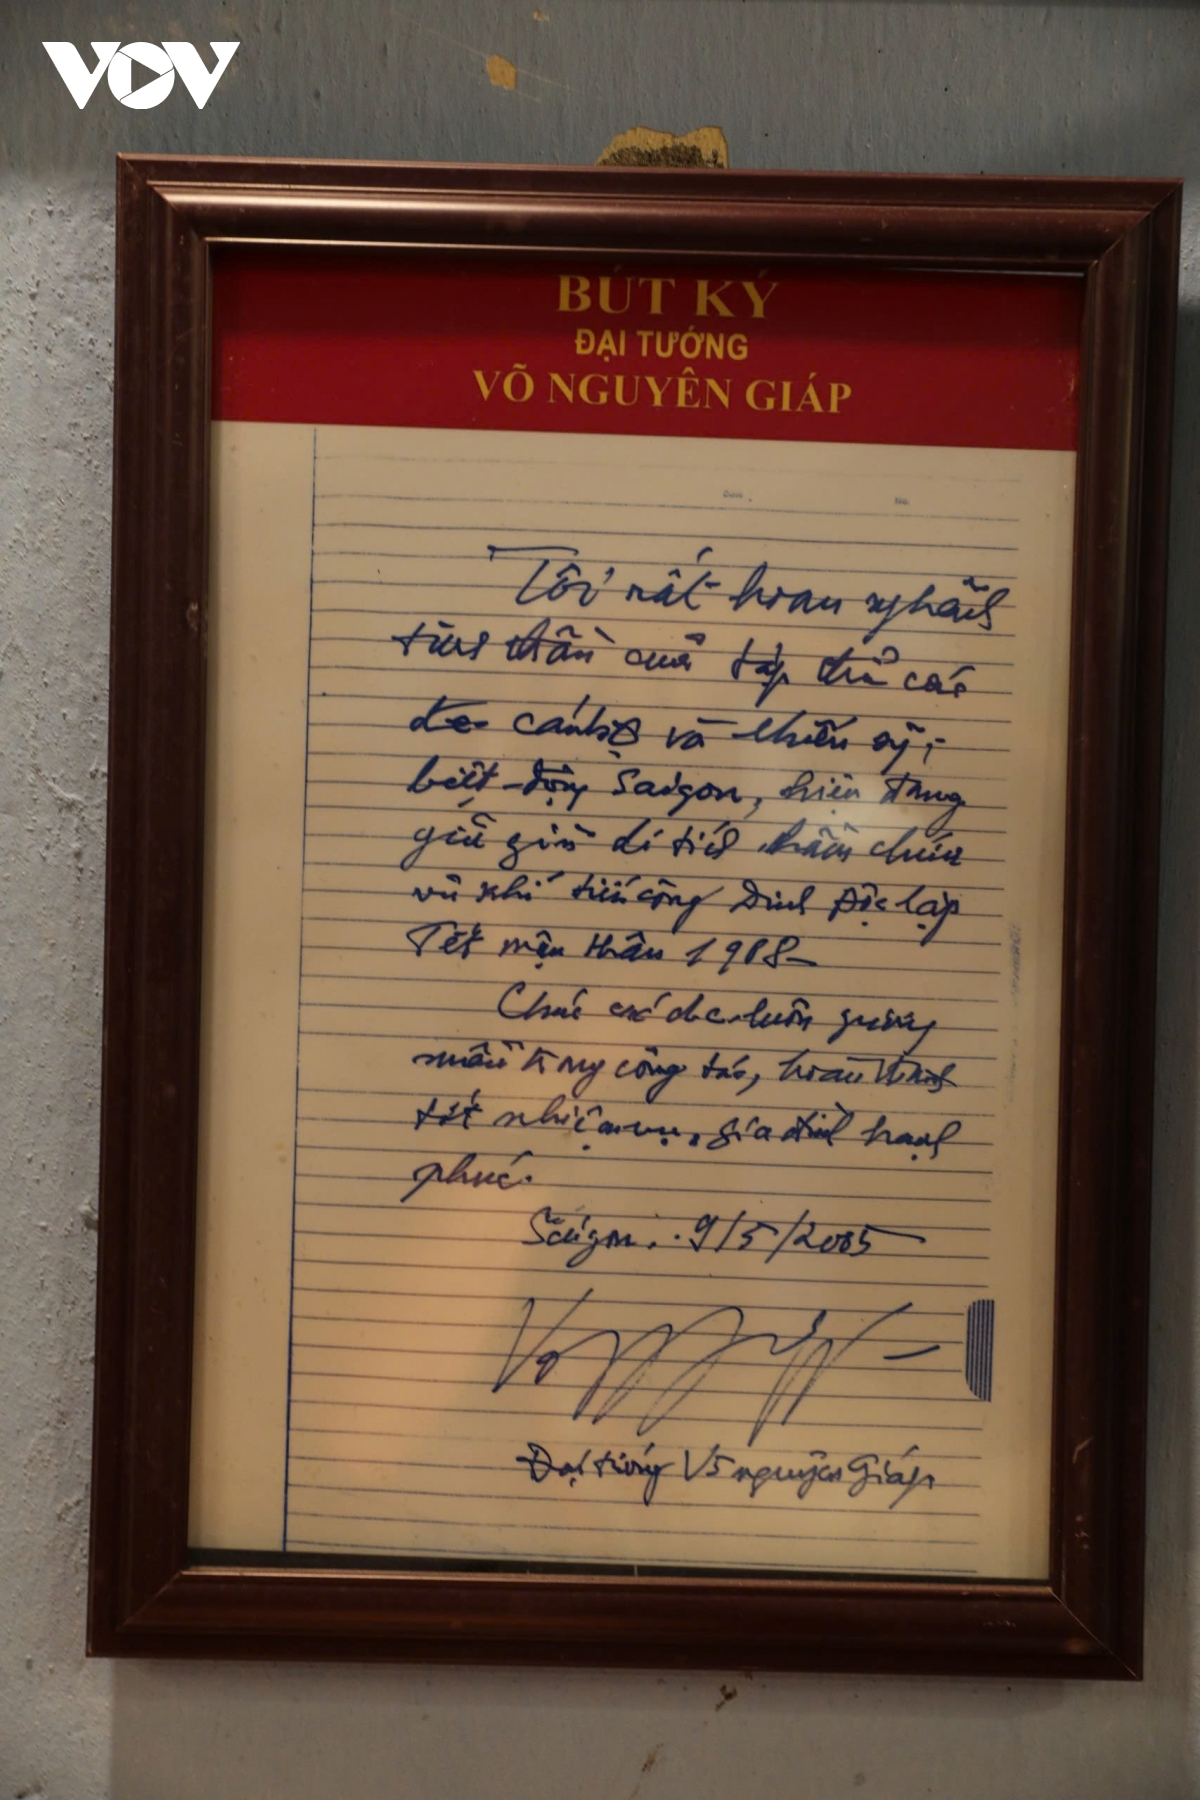 VOV
BÚT KÝ
ĐẠI TƯỚNG
VÕ NGUYÊN GIÁP
Date No.
Tôi rất hoan nghênh
tinh thần của tập thể các
cán bộ và chiến sỹ,
biệt-động Saigon, hiện đang
giữ gìn di tích hầm chứa
vũ khí tiến công Dinh Độc lập
Tết mậu thân 1968-
Chúc các đ/c luôn gương
mẫu trong công tác, hoàn thành
tốt nhiệm vụ, gia đình hạnh
phúc.
Sàigon, 9/5/2005
Đại tướng Võ nguyên Giáp